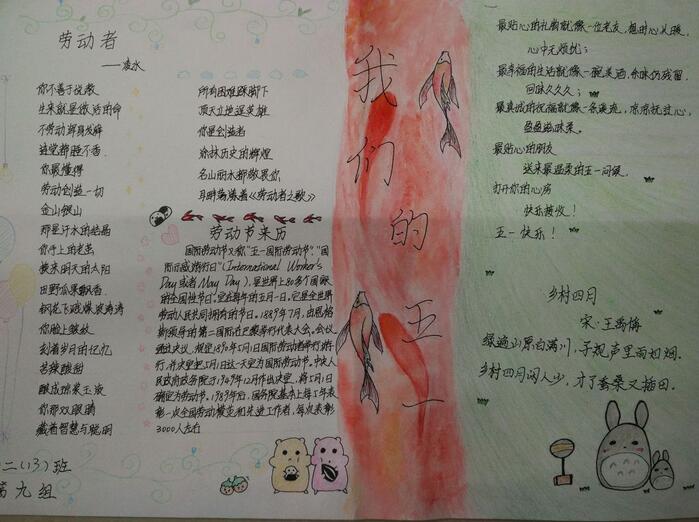 劳动者
——凌水
你不善于说教
生来就是做活的命
不劳动浑身发酸
连觉都睡不香
你最懂得
劳动创造一切
金山银山
那是汗水的结晶
你手上的老茧
被来明天的太阳
田野瓜果飘香
钢花飞溅爆浪涛涛
你脸上皱纹
刻着岁月的记忆
苦辣酸甜
酿成琼浆玉液
你那双眼睛
藏着智慧与聪明
二(13)班
第九组
所有困难踩脚下
顶天立地逞英雄
你是创造者
涂抹历史的辉煌
名山丽水都敬畏你
耳畔荡漾着《劳动者之歌》
劳动节来历
国际劳动节又称"五一国际劳动节"、"国
际示威游行日"(International Worker's
Day或者May Day),是世界上80多个国家
的全国性节日。定在每年的五月一日。它是全世界
劳动人民共同拥有的节日。1889年7月,由恩格
斯领导的第二国际在巴黎举行代表大会。会议
通过决议,规定1890年5月1日国际劳动者举行游
行,并决定把5月1日这一天定为国际劳动节。中央人
民政府政务院于1949年12月作出决定,将5月1日
确定为劳动节。1989年后,国务院基本上每5年表
彰一次全国劳动模范和先进工作者,每次表彰
3000人左右
我们的五一
最贴心的礼物就像一位老友,想时心头暖,
心中无烦忧;
最幸福的生活就像一碗美酒,余味仍残留
回味久久久;
最真诚的祝福就像一条溪流,凉凉抚过心,
盈盈滋味柔。
最贴心的朋友
送来最温柔的五一问候。
打开你的心房
快乐接收!
五一快乐!
乡村四月
宋·王禹偁
绿遍山原白满川,子规声里雨如烟。
乡村四月闲人少,才了蚕桑又插田。